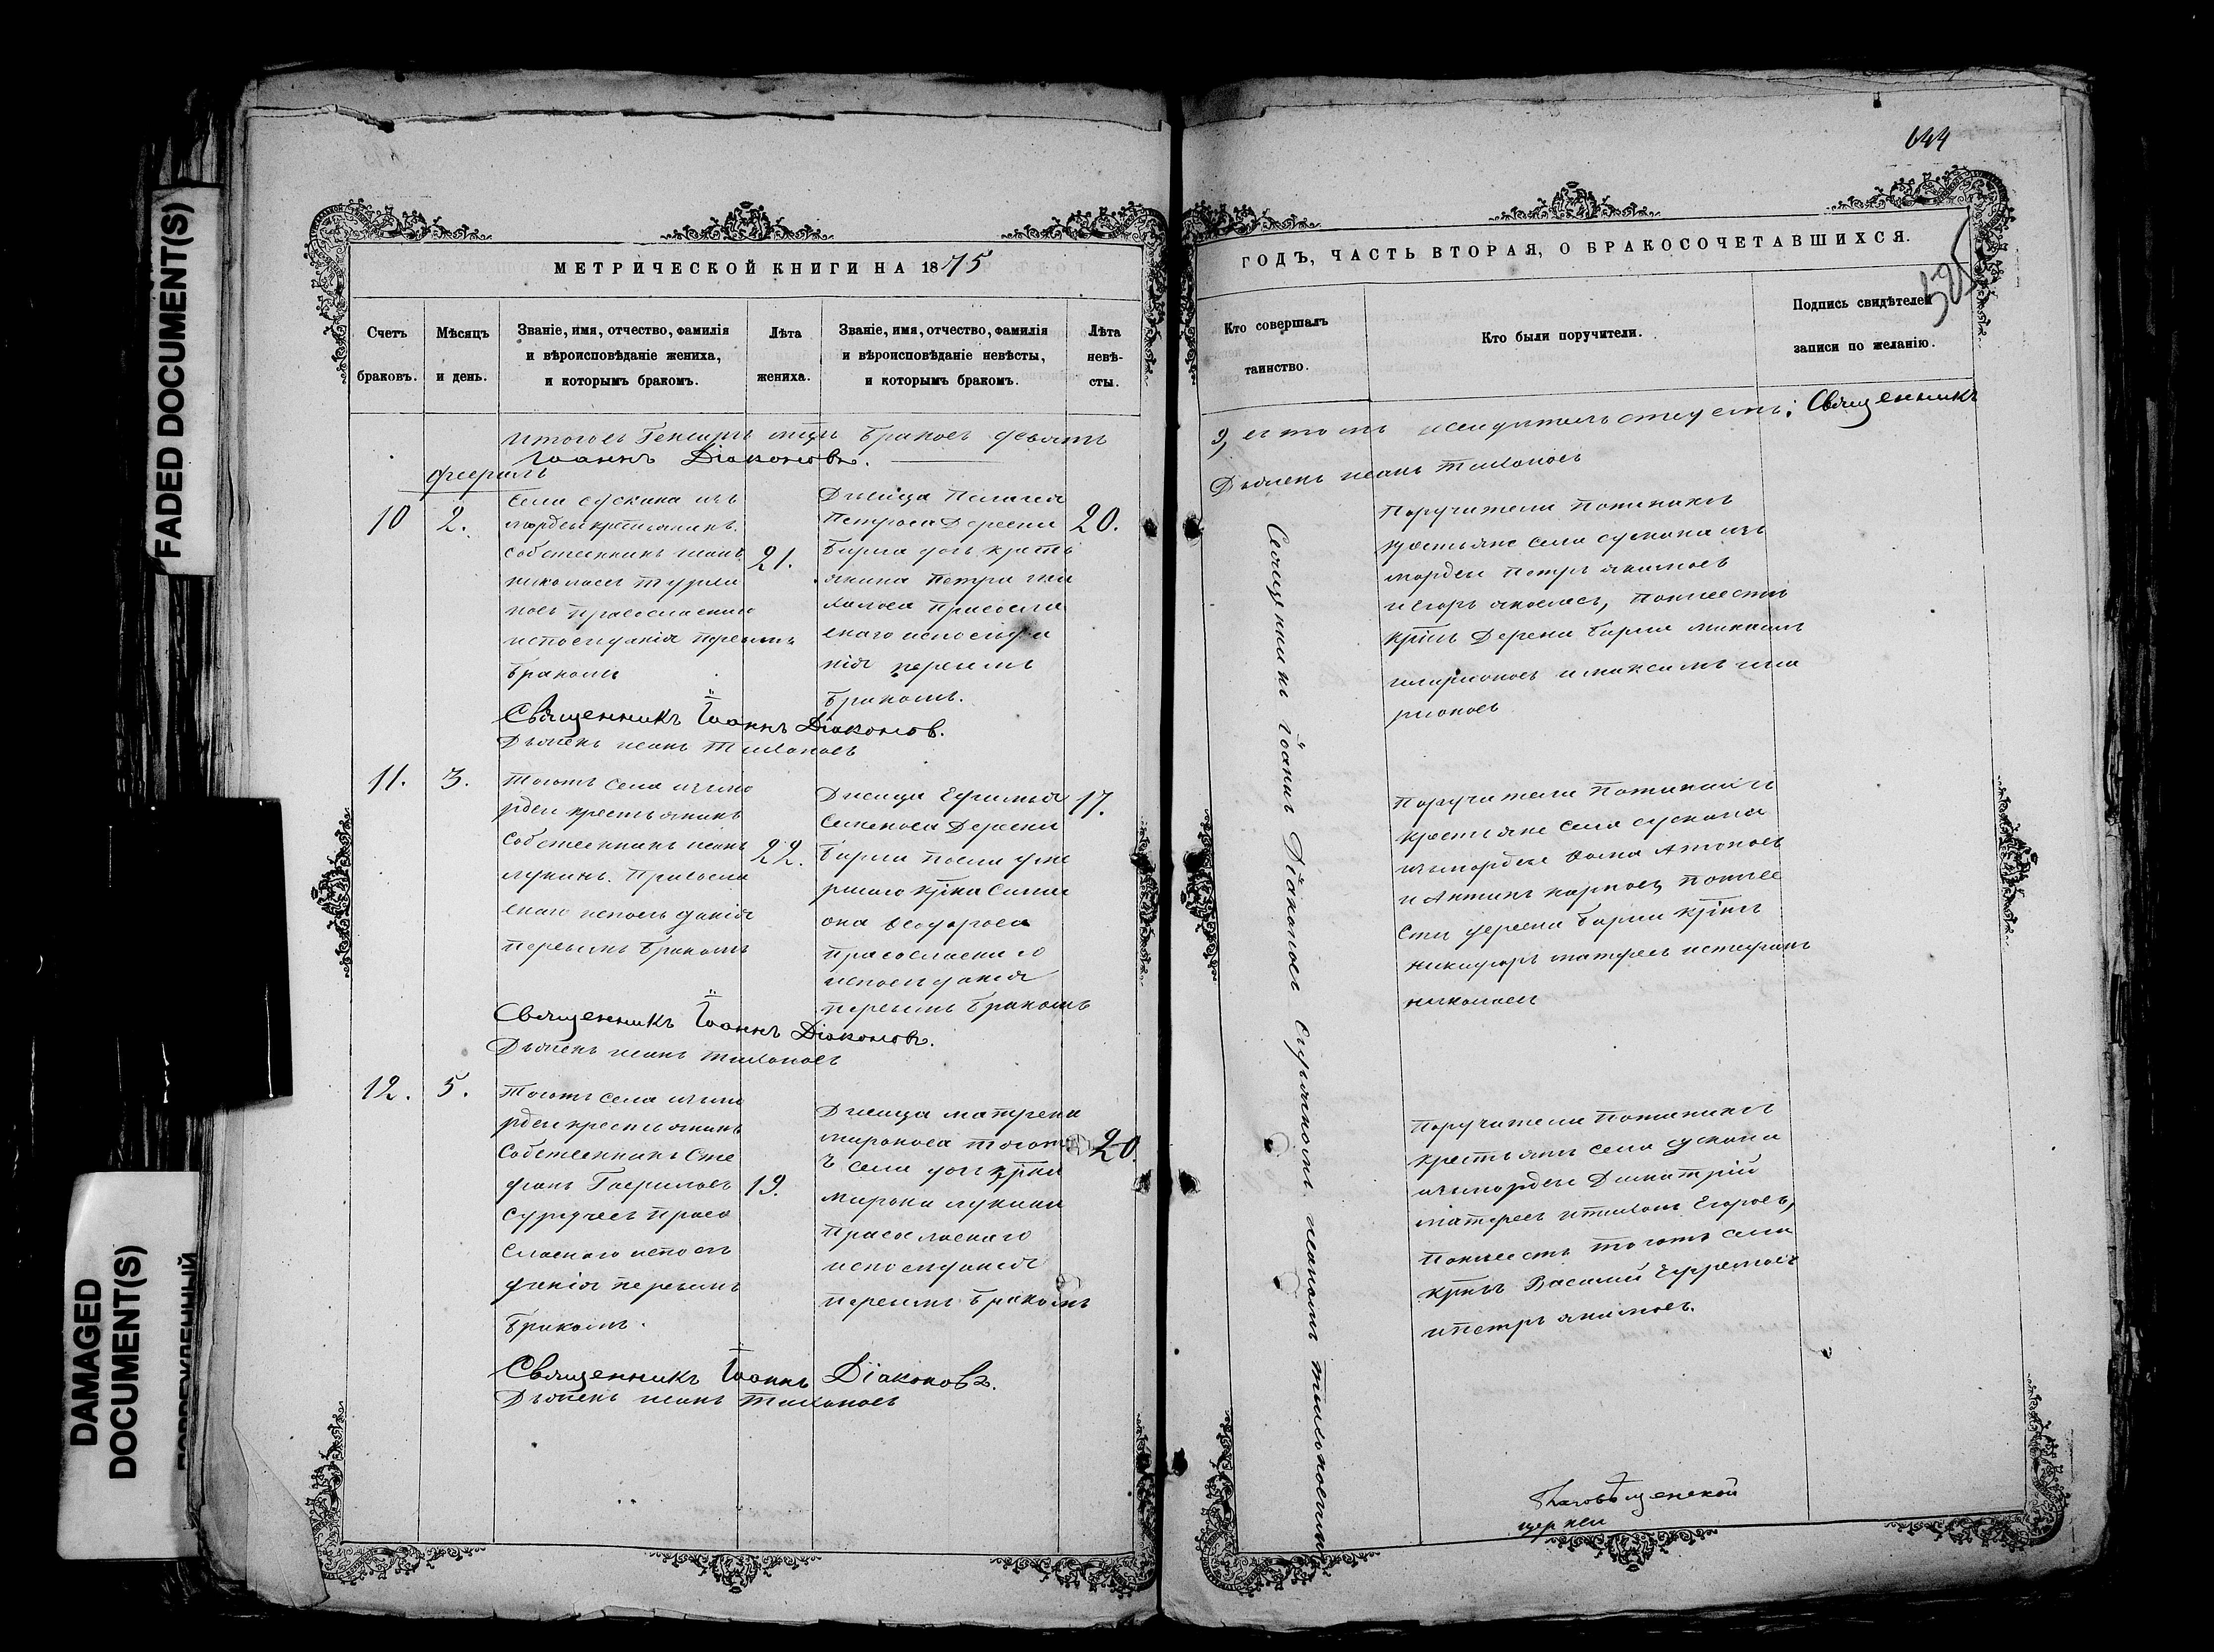 FADED DOCUMENT(S)
DAMAGED
DOCUMENT(S)
644
525
МЕТРИЧЕСКОЙ КНИГИ НА 1875
Счетъ
браковъ.
Мѣсяцъ
и день.
Званіе, имя, отчество, фамилія
и вѣроисповѣданіе жениха,
и которымъ бракомъ.
Лѣта
жениха.
Званіе, имя, отчество, фамилія
и вѣроисповѣданіе невѣсты,
и которымъ бракомъ.
Лѣта
невѣ-
сты.
Итогов Генваръ браков девять
Іоаннъ Діаконовъ.
февраль
10
2.
Села Сускана изъ
мордвы крестьянинъ
собственникъ Иванъ
Николаев
нов православнаго
исповеданія первымъ
браком
21.
Девица Пелагея
Петрова Деревни
Бирли доч крестъ
янина Петра
православ
наго исповеда
нія первымъ
браком.
20.
Священникъ Іоаннъ Діаконов.
Дьячекъ Иванъ Тихонов
11.
3.
Тогожъ села изъ мо
рдвы крестьянинъ
собственникъ Иванъ
Лукинъ. Правосла
внаго исповеданія
первымъ бракомъ
22.
Девица Ефимья
Семенова Деревни
Бирли после уме
ршаго крна Симе
она Феодорова
православнаго
исповеданія
первымъ бракомъ
17.
Священникъ Іоаннъ Діаконовъ.
Дьячекъ Иванъ Тихонов
12.
5.
Тогожъ села изъ мо
рдвы крестьянинъ
Собственникъ Сте
фанъ Гаврилов
право
славнаго испове
данія первымъ
браком.
19.
Девица Матрена
Миронова тогож
ъ села доч крна
Мирона Лукина
Православнаго
исповеданія
первымъ бракомъ
20.
Священникъ Іоаннъ Діаконовъ.
Дьячекъ Иванъ Тихонов
ГОДЪ, ЧАСТЬ ВТОРАЯ, О БРАКОСОЧЕТАВШИХСЯ.
Кто совершалъ
таинство.
Кто были поручители.
Подпись свидѣтелей
записи по желанію.
9, в том и свидетельствуем: Священникъ
Дьячекъ Иванъ Тихонов
Священникъ Іоаннъ Діаконов с дьячкомъ Иваномъ Тихоновымъ
Поручители по женихе
крестьяне села Сускана изъ
мордвы Петръ Якимов
и Егоръ Яковлев, по невесте
крне Деревни Бирли Михаилъ
Иларионов и Максимъ Ила
рионов
Поручители по женихе
крестьяне села Сускана
изъ мордвы Фома Антонов
и Антипъ Карпов, по неве
сте деревни Бирли крне
Никифоръ Матвеев и Стефанъ
Николаев
Поручители по женихе
крестьяне села Сускана
изъ мордвы Димитрій
Матвеев и Тихон Егоров,
по невесте тогожъ села
крне Василий Ефремов
и Петръ Якимов.
Благовещенской
церкви